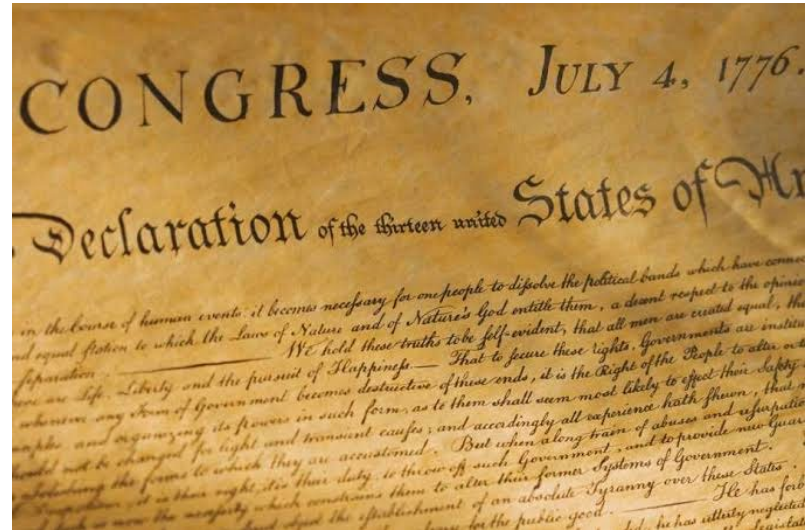 CONGRESS, JULY 4, 1776.
Declaration of the thirteen united States of Am
in the Course of human events, it becomes necessary for one people to dissolve the political bands which have connec
nd equal station to which the Laws of Nature and of Nature's God entitle them, a decent respect to the opinio
separation. — We hold these truths to be self-evident, that all men are created equal, tha
are Life, Liberty and the pursuit of Happiness. — That to secure these rights, Governments are institu
whenever any Form of Government becomes destructive of these ends, it is the Right of the People to alter or to
and organizing its powers in such form, as to them shall seem most likely to effect their Safety
should not be changed for light and transient causes; and accordingly all experience hath shewn, that
the forms to which they are accustomed. But when a long train of abuses and usurpatio
it is their right, it is their duty, to throw off such Government, and to provide new Guar
now the necessity which constrains them to alter their former Systems of Government.
the establishment of an absolute Tyranny over these States.
for the public good. — He has forb
he has utterly neglected